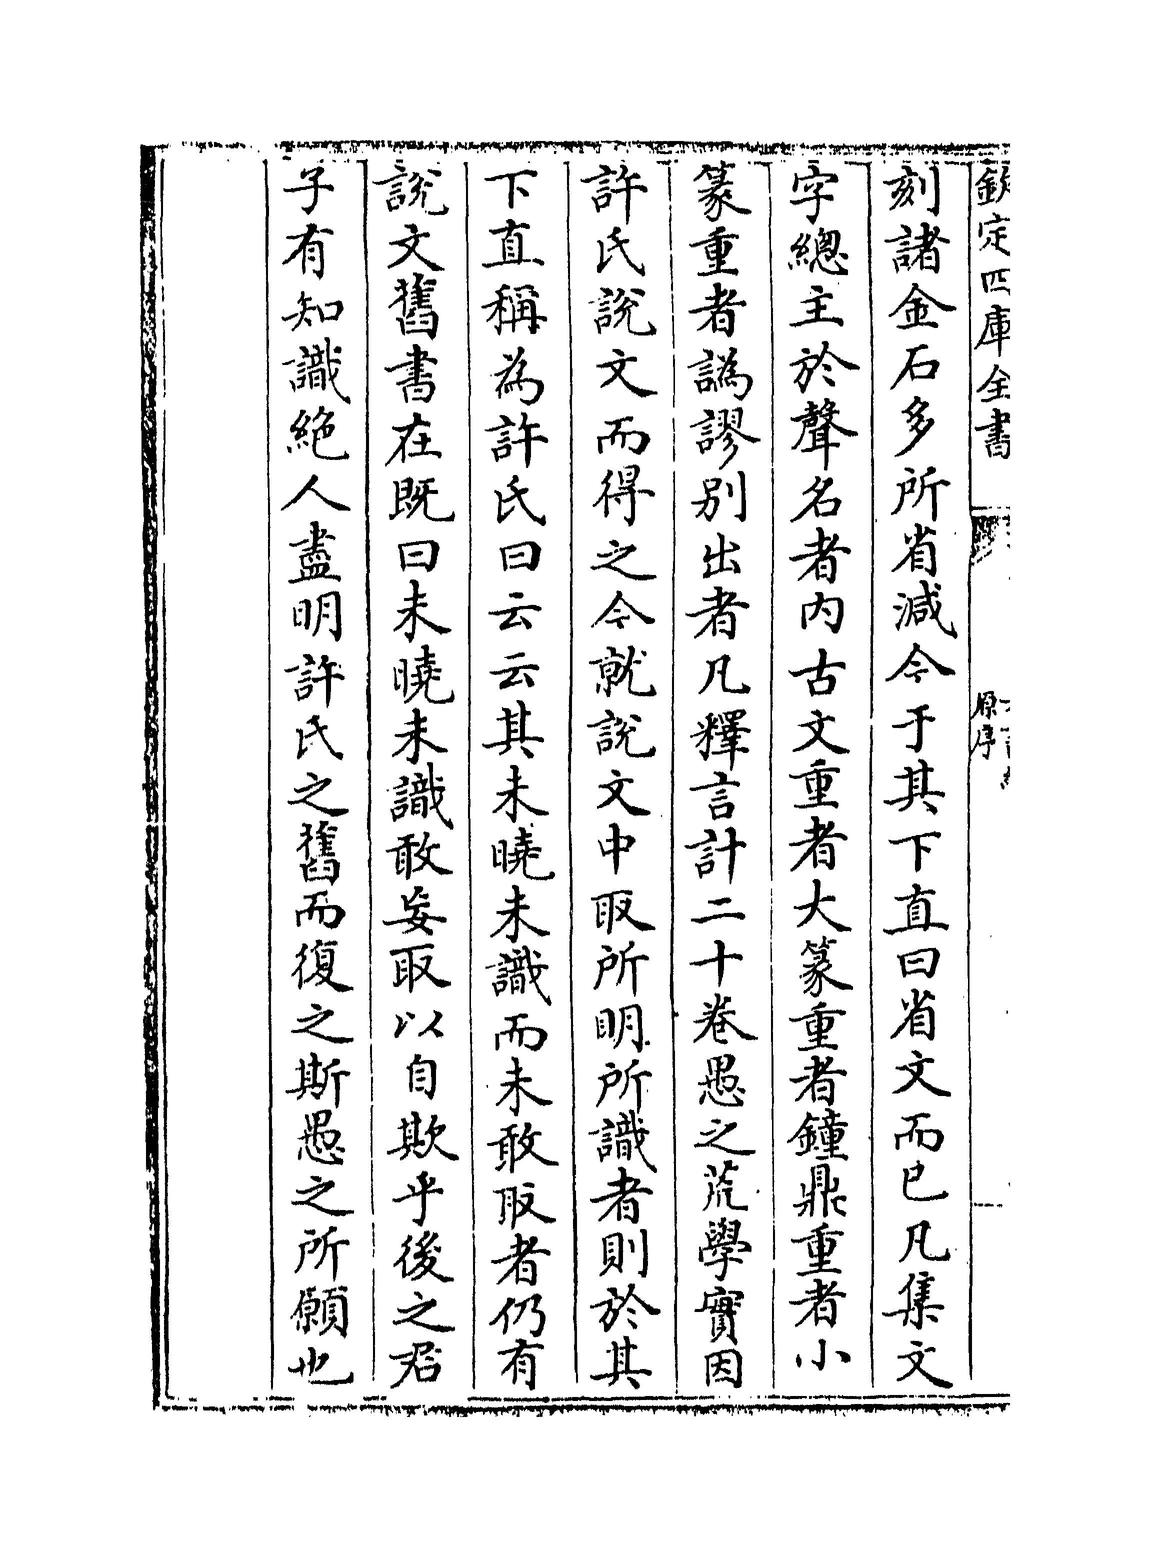 欽定四庫全書
原序
刻諸金石多所省減今于其下直曰省文而已凡集文
字總主於聲名者内古文重者大篆重者鐘鼎重者小
篆重者譌謬别出者凡釋言計二十卷愚之荒學實因
許氏說文而得之今就說文中取所明所識者則於其
下直稱為許氏曰云云其未曉未識而未敢取者仍有
說文舊書在既曰未曉未識敢妄取以自欺乎後之君
子有知識絶人盡明許氏之舊而復之斯愚之所願也